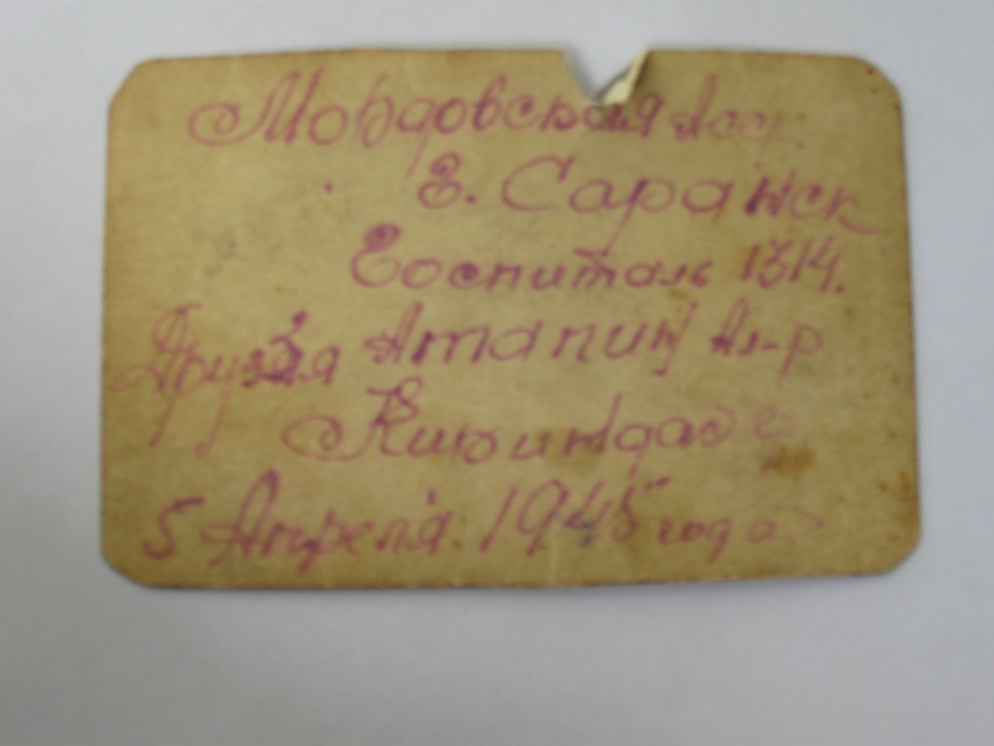 Мордовская Асср.
г. Саранск
Госпиталь 1314.
Друзья Атапин Ал-р
5 Апреля 1945 года